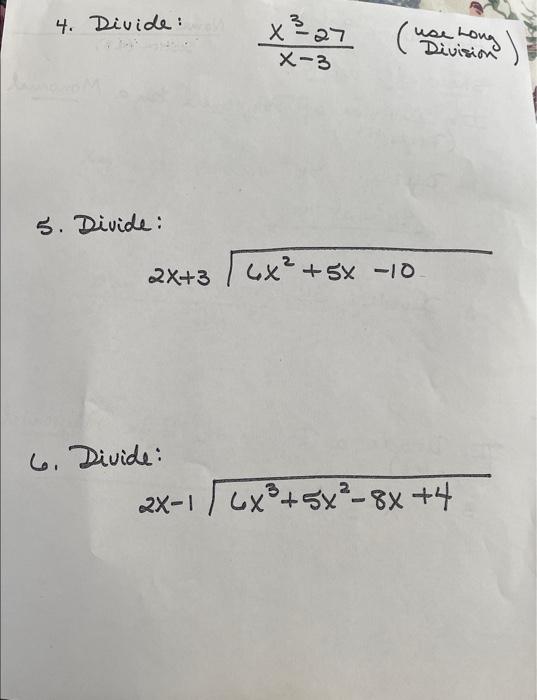 4. Divide: x³-27 / x-3 (use Long Division)
5. Divide:
2x+3 ) 6x² +5x -10
6. Divide:
2x-1 ) 6x³+5x²-8x +4